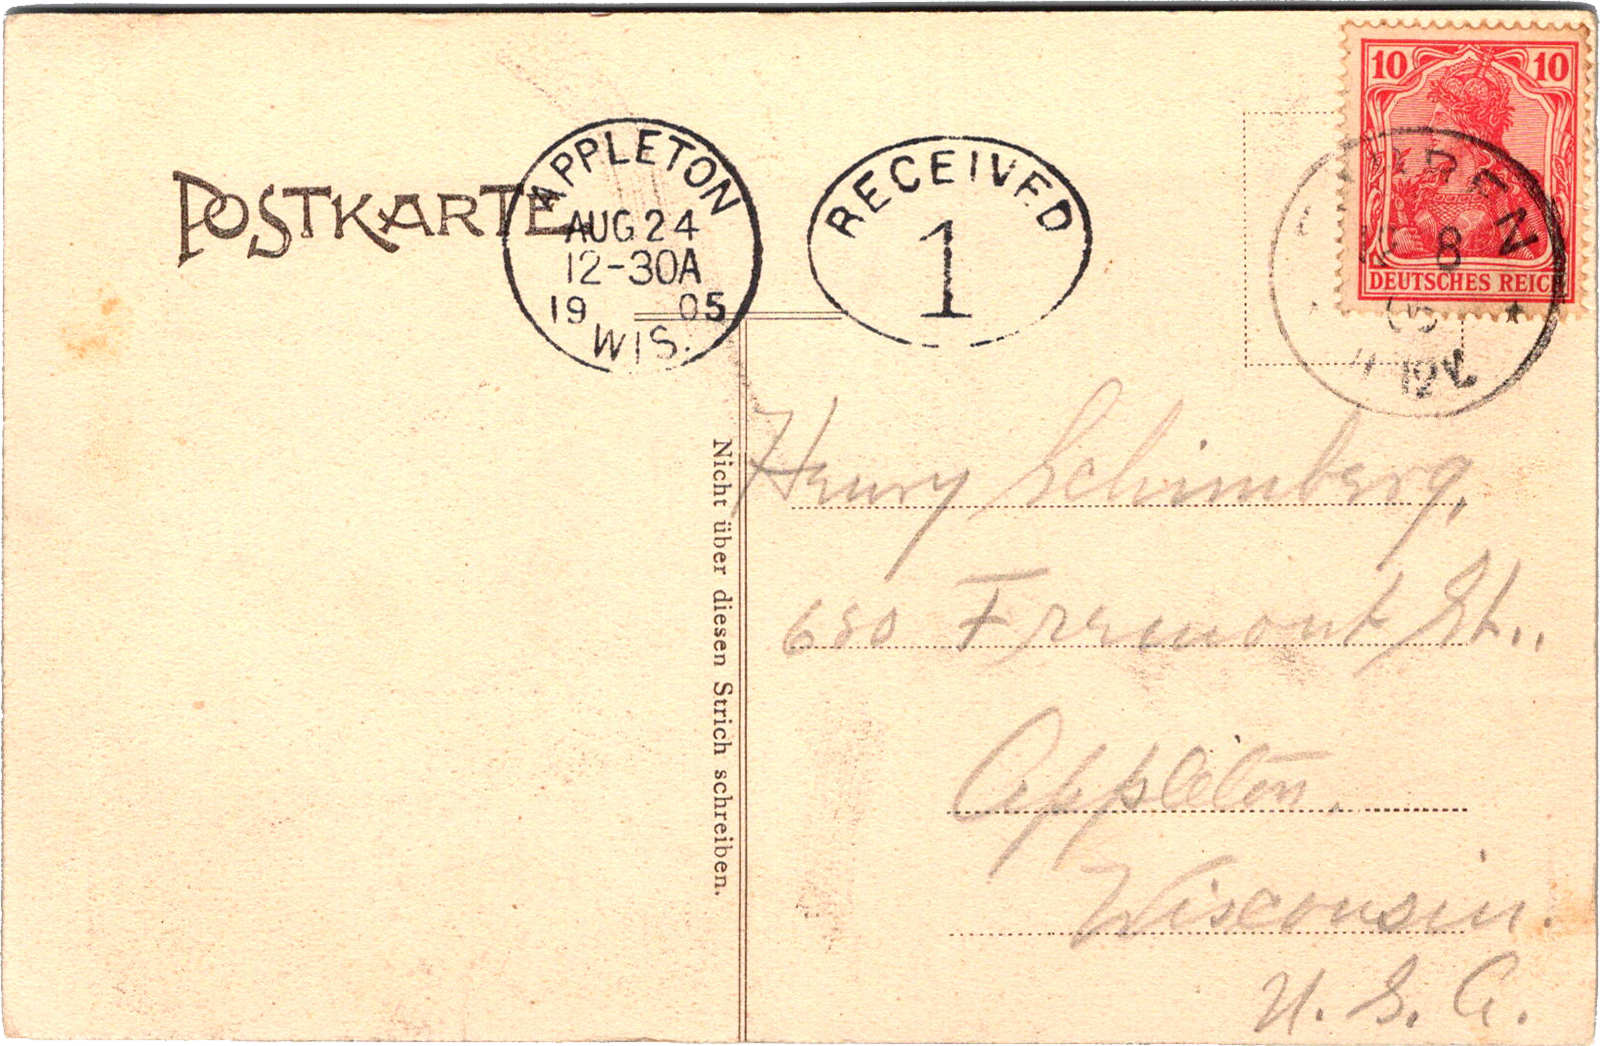 POSTKARTE
APPLETON
AUG 24
12-30A
19 05
WIS.
RECEIVED
1
10 10
DEUTSCHES REICH
8
05
Nicht über diesen Strich schreiben.
Henry Schimberg,
680 Fremont St.,
Appleton,
Wisconsin.
U. S. A.